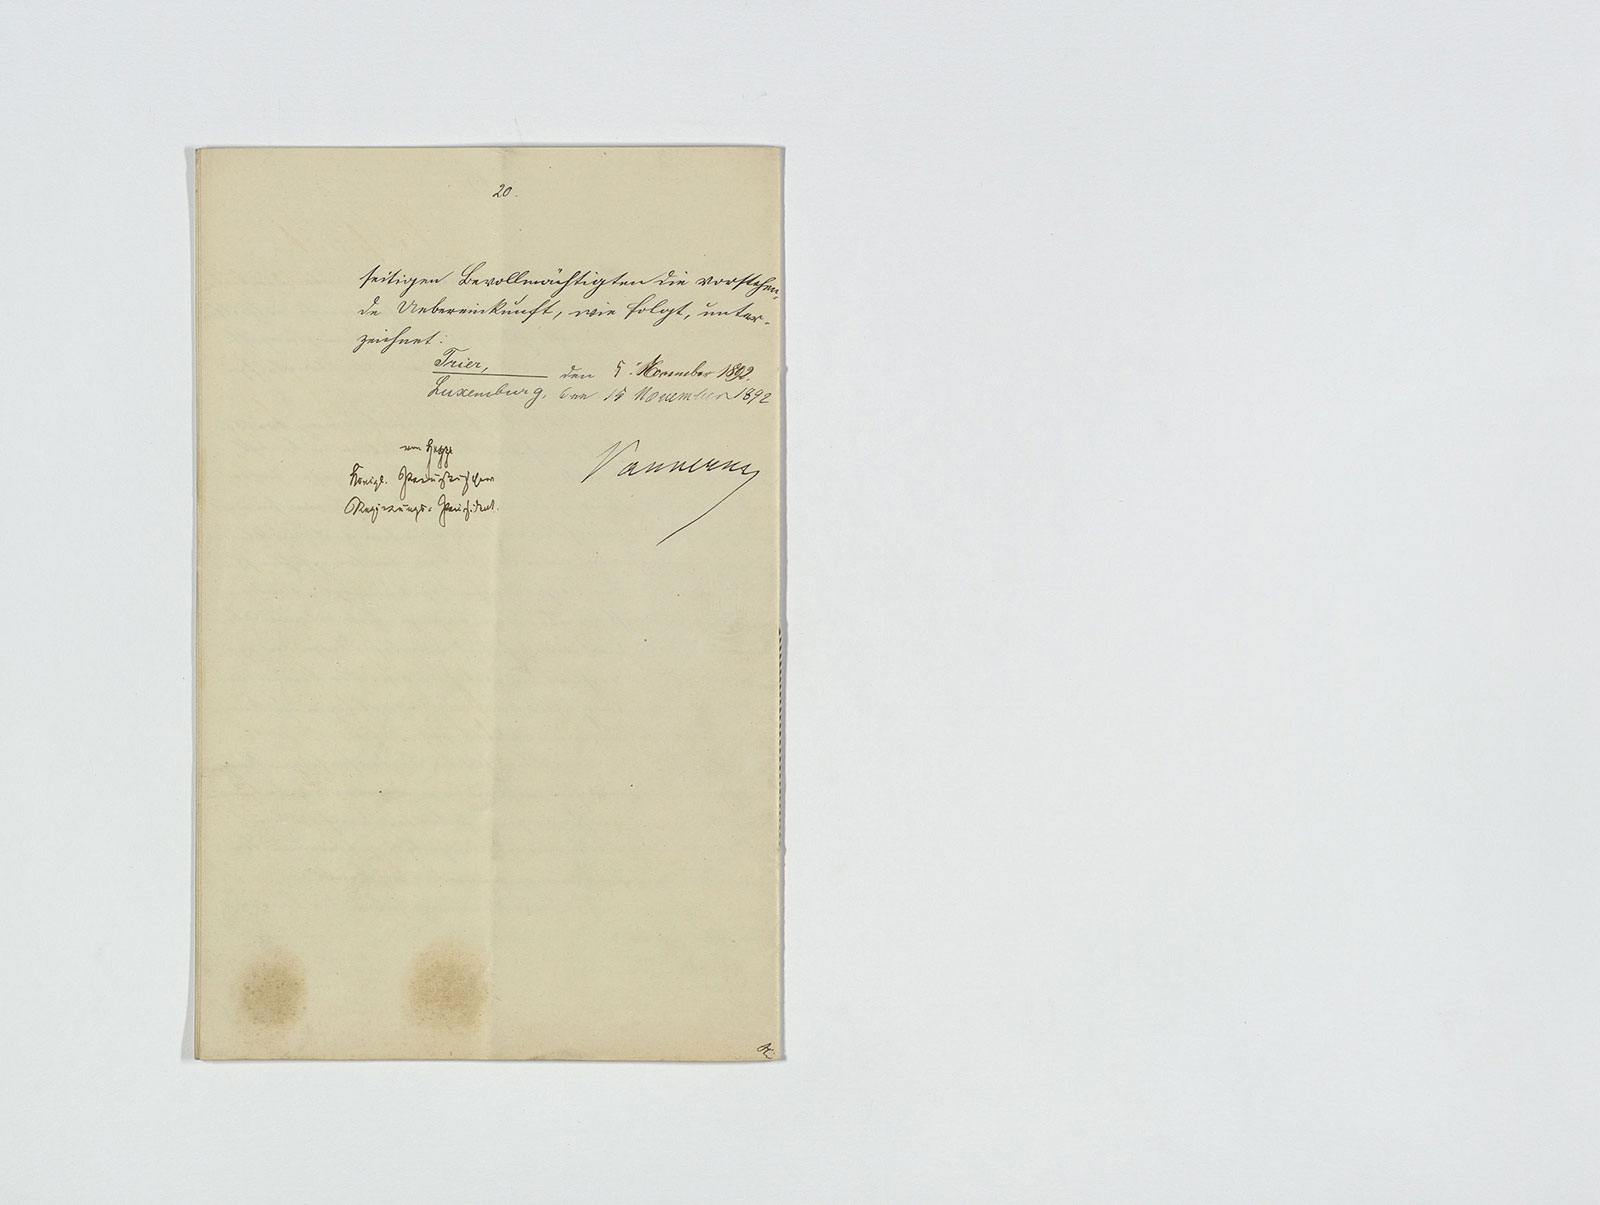 20.
seitigen Bevollmächtigten die vorstehen-
de Uebereinkunft, wie folgt, unter-
zeichnet:
Trier, den 5. November 1892.
Luxemburg, den 15 November 1892
von Heppe
Königl. Preußischer
Regierungs-Präsident.
Vannerus